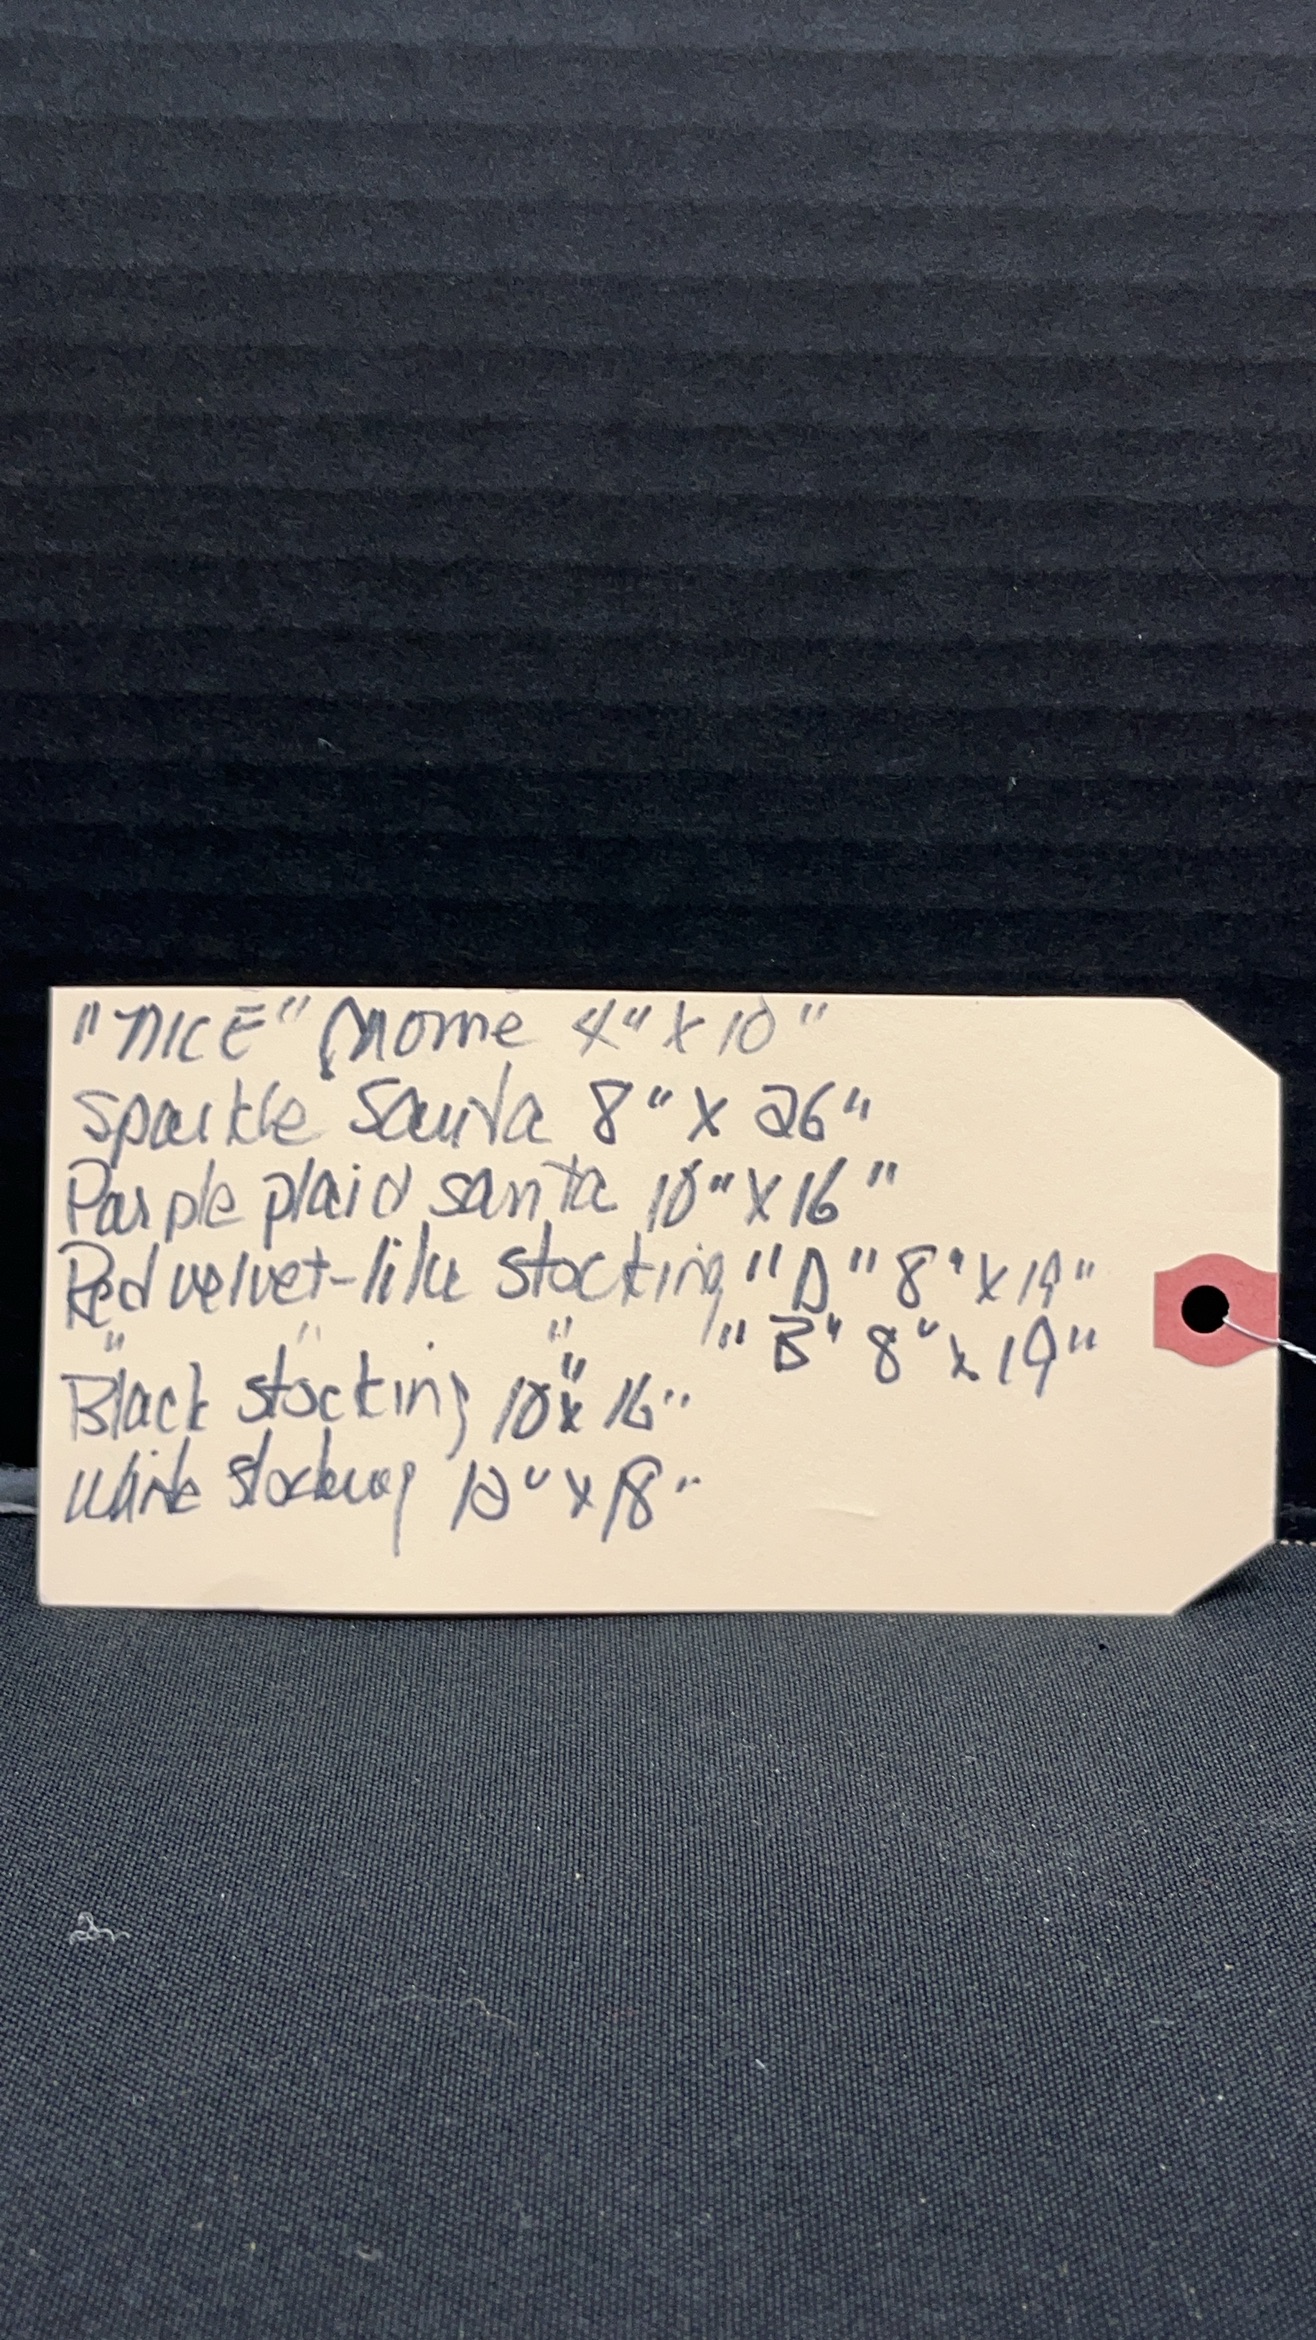 "NICE" Gnome 4" X 10"
Sparkle Santa 8" X 26"
Purple plaid santa 10" X 16"
Red velvet-like stocking "D" 8" X 19"
" " " " "B" 8" x 19"
Black stocking 10" x 16"
White stocking 12" x 18"